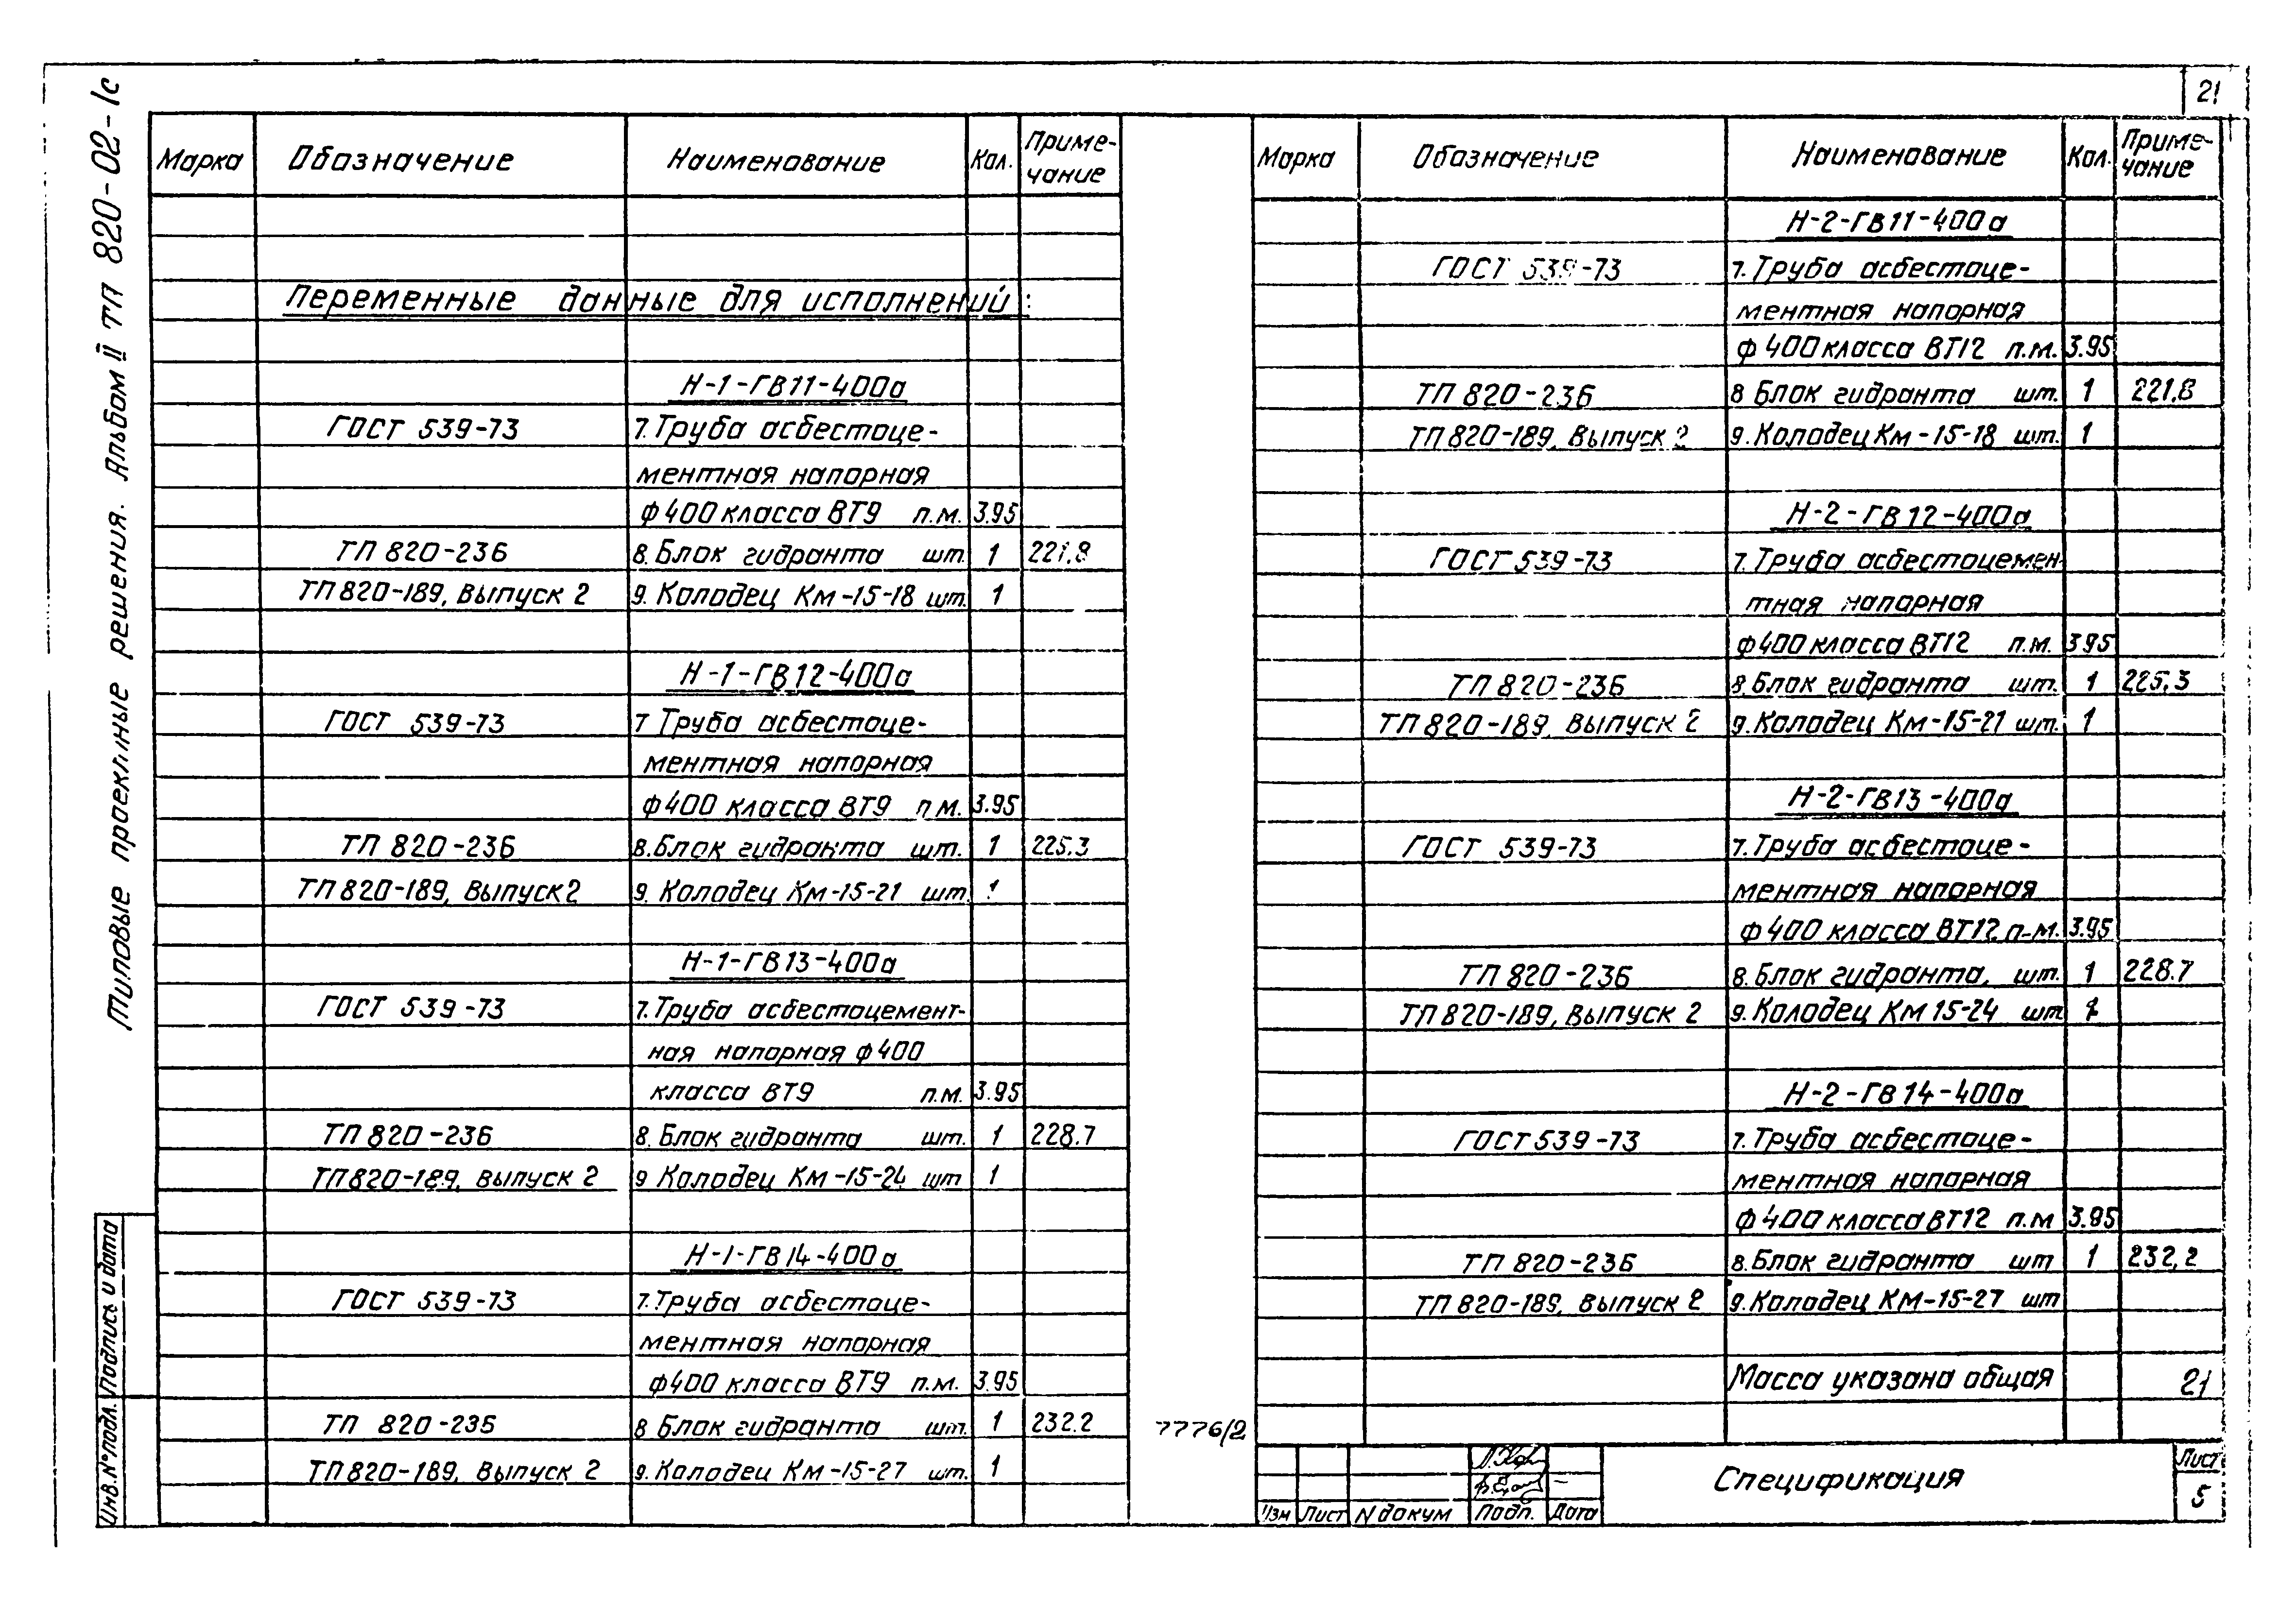 21
Типовые проектные решения. Альбом II ТП 820-02-1с
Марка Обозначение Наименование Кол. Приме-
чание
Переменные данные для исполнений:
Н-1-ГВ11-400а
ГОСТ 539-73 7. Труба асбестоце-
ментная напорная
ф400 класса ВТ9 п.м. 3.95
ТП 820-236 8. Блок гидранта шт 1 221,8
ТП 820-189, Выпуск 2 9. Колодец Км-15-18 шт. 1
Н-1-ГВ12-400а
ГОСТ 539-73 7 Труба асбестоце-
ментная напорная
ф400 класса ВТ9 п м. 3.95
ТП 820-236 8. Блок гидранта шт. 1 225.3
ТП 820-189, Выпуск 2 9. Колодец Км-15-21 шт. 1
Н-1-ГВ13-400а
ГОСТ 539-73 7. Труба асбестоцемент-
ная напорная ф400
класса ВТ9 п.м. 3.95
ТП 820-236 8. Блок гидранта шт. 1 228.7
ТП 820-189, Выпуск 2 9 Колодец Км-15-24 шт 1
Н-1-ГВ14-400а
ГОСТ 539-73 7. Труба асбестоце-
ментная напорная
ф400 класса ВТ9 п.м. 3.95
ТП 820-236 8 Блок гидранта шт. 1 232.2
ТП 820-189, Выпуск 2 9. Колодец Км-15-27 шт. 1
Марка Обозначение Наименование Кол. Приме-
чание
Н-2-ГВ11-400а
ГОСТ 539-73 7. Труба асбестоце-
ментная напорная
ф400 класса ВТ12 п.м. 3.95
ТП 820-236 8 Блок гидранта шт. 1 221,8
ТП 820-189, Выпуск 2 9. Колодец Км-15-18 шт. 1
Н-2-ГВ12-400а
ГОСТ 539-73 7. Труба асбестоцемен-
тная напорная
ф400 класса ВТ12 п.м. 3.95
ТП 820-236 8. Блок гидранта шт. 1 225.3
ТП 820-189, Выпуск 2 9. Колодец Км-15-21 шт. 1
Н-2-ГВ13-400а
ГОСТ 539-73 7. Труба асбестоце-
ментная напорная
ф400 класса ВТ12 п.м. 3.95
ТП 820-236 8. Блок гидранта, шт. 1 228.7
ТП 820-189, Выпуск 2 9. Колодец Км 15-24 шт 1
Н-2-ГВ14-400а
ГОСТ 539-73 7. Труба асбестоце-
ментная напорная
ф400 класса ВТ12 п.м 3.95
ТП 820-236 8. Блок гидранта шт 1 232,2
ТП 820-189, Выпуск 2 9. Колодец Км-15-27 шт
Масса указана общая 21
7776/2
Изм Лист N докум Подп. Дата
Спецификация
Лист
5
Инв. N° подл. Подпись и дата